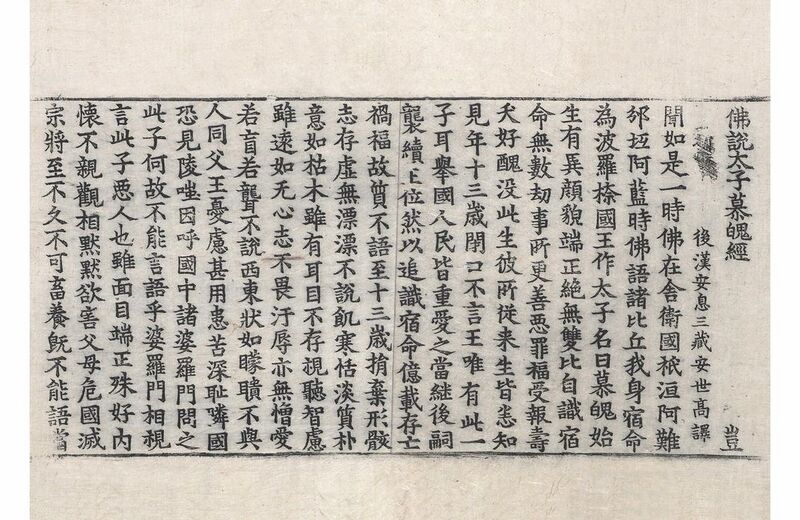 佛說太子慕魄經 豈
後漢安息三藏安世高譯
聞如是一時佛在舍衛國祇洹阿難
邠坻阿藍時佛語諸比丘我身宿命
為波羅㮈國王作太子名曰慕魄始
生有異顏貌端正絕無雙比自識宿
命無數劫事所更善惡罪福受報壽
夭好醜沒此生彼所從来生皆悉知
見年十三歲閉口不言王唯有此一
子耳舉國人民皆重愛之當継後嗣
襲續王位然以追識宿命億載存亡
禍福故質不語至十三歲捐棄形骸
志存虛無漂漂不說飢寒恬淡質朴
意如枯木雖有耳目不存視聽智慮
雖遠如无心志不畏汙辱亦無憎愛
若盲若聾不說西東狀如矇聵不與
人同父王憂慮甚用患苦深耻隣國
恐見陵㘴因呼國中諸婆羅門問之
此子何故不能言語乎婆羅門相視
言此子悪人也雖面目端正殊好內
懷不親觀相默默欲害父母危國滅
宗將至不久不可畜養旣不能語當